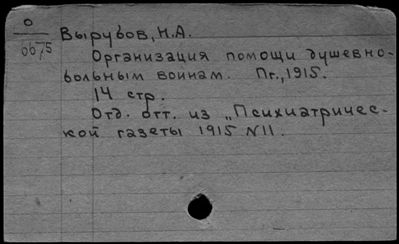 0
0675
Вырубов, Н.А.
Организация помощи душевно-
больным воинам. Пг., 1915.
14 стр.
Отд. отт. из „Психиатричес-
кой газеты 1915 N11.